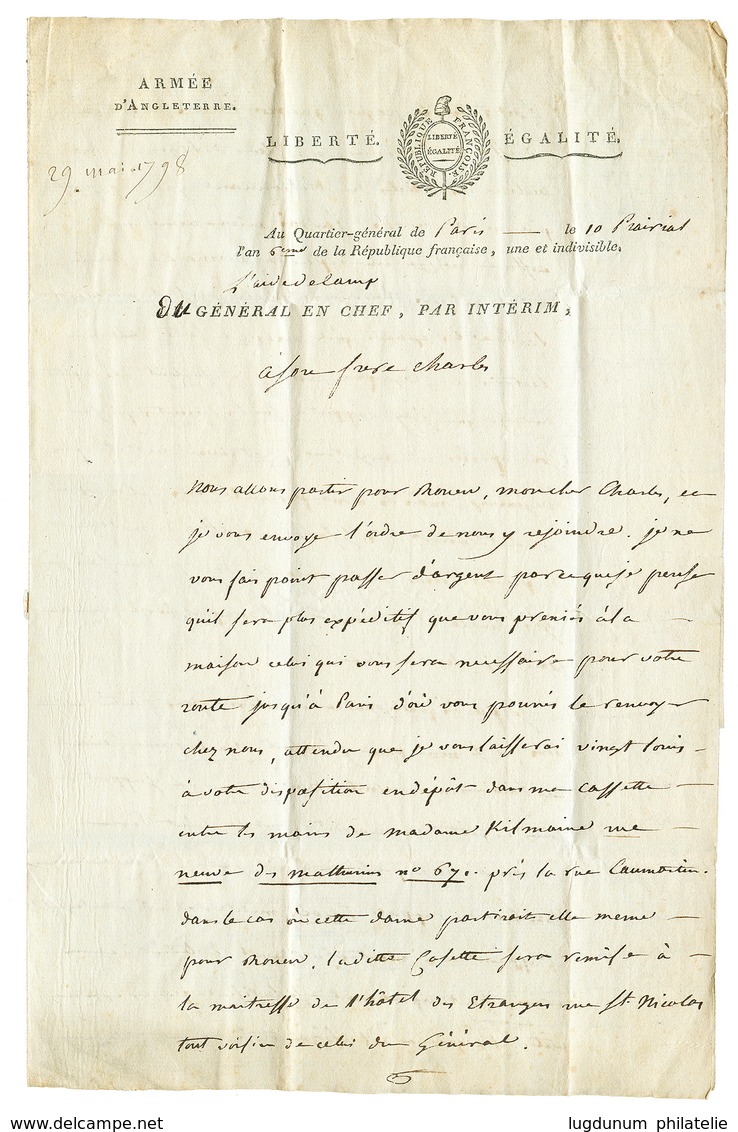 ARMÉE
D'ANGLETERRE.
LIBERTÉ. ÉGALITÉ.
RÉPUBLIQUE FRANÇOISE.
LIBERTÉ
ÉGALITÉ
29 mai 1798
Au Quartier-général de Paris — le 10 Prairial
l'an 6eme de la République française, une et indivisible.
L'aide de camp
DU GÉNÉRAL EN CHEF, PAR INTÉRIM,
a son frere Charles
nous allons partir pour Rouen, mon cher Charles, et
je vous envoye l'ordre de nous y rejoindre. je ne
vous fais point passer d'argent parceque je pense
qu'il sera plus expéditif que vous preniés à la —
maison celui qui vous sera necessaire pour votre
route jusqu'à Paris d'où vous pourrés le renvoyer
chez nous, attendu que je vous laisserai vingt louis —
à votre disposition en dépôt dans ma cassette —
entre les mains de madame Kilmaine rue —
neuve des mathurins no 670. près la rue Caumartin.
dans le cas où cette dame partirait elle meme —
pour Rouen, laditte Cassette sera remise à —
la maitresse de l'hôtel des Etrangers rue St. Nicolas
tout voisin de celui du Général.
delcampe.net
lugdunum philatelie